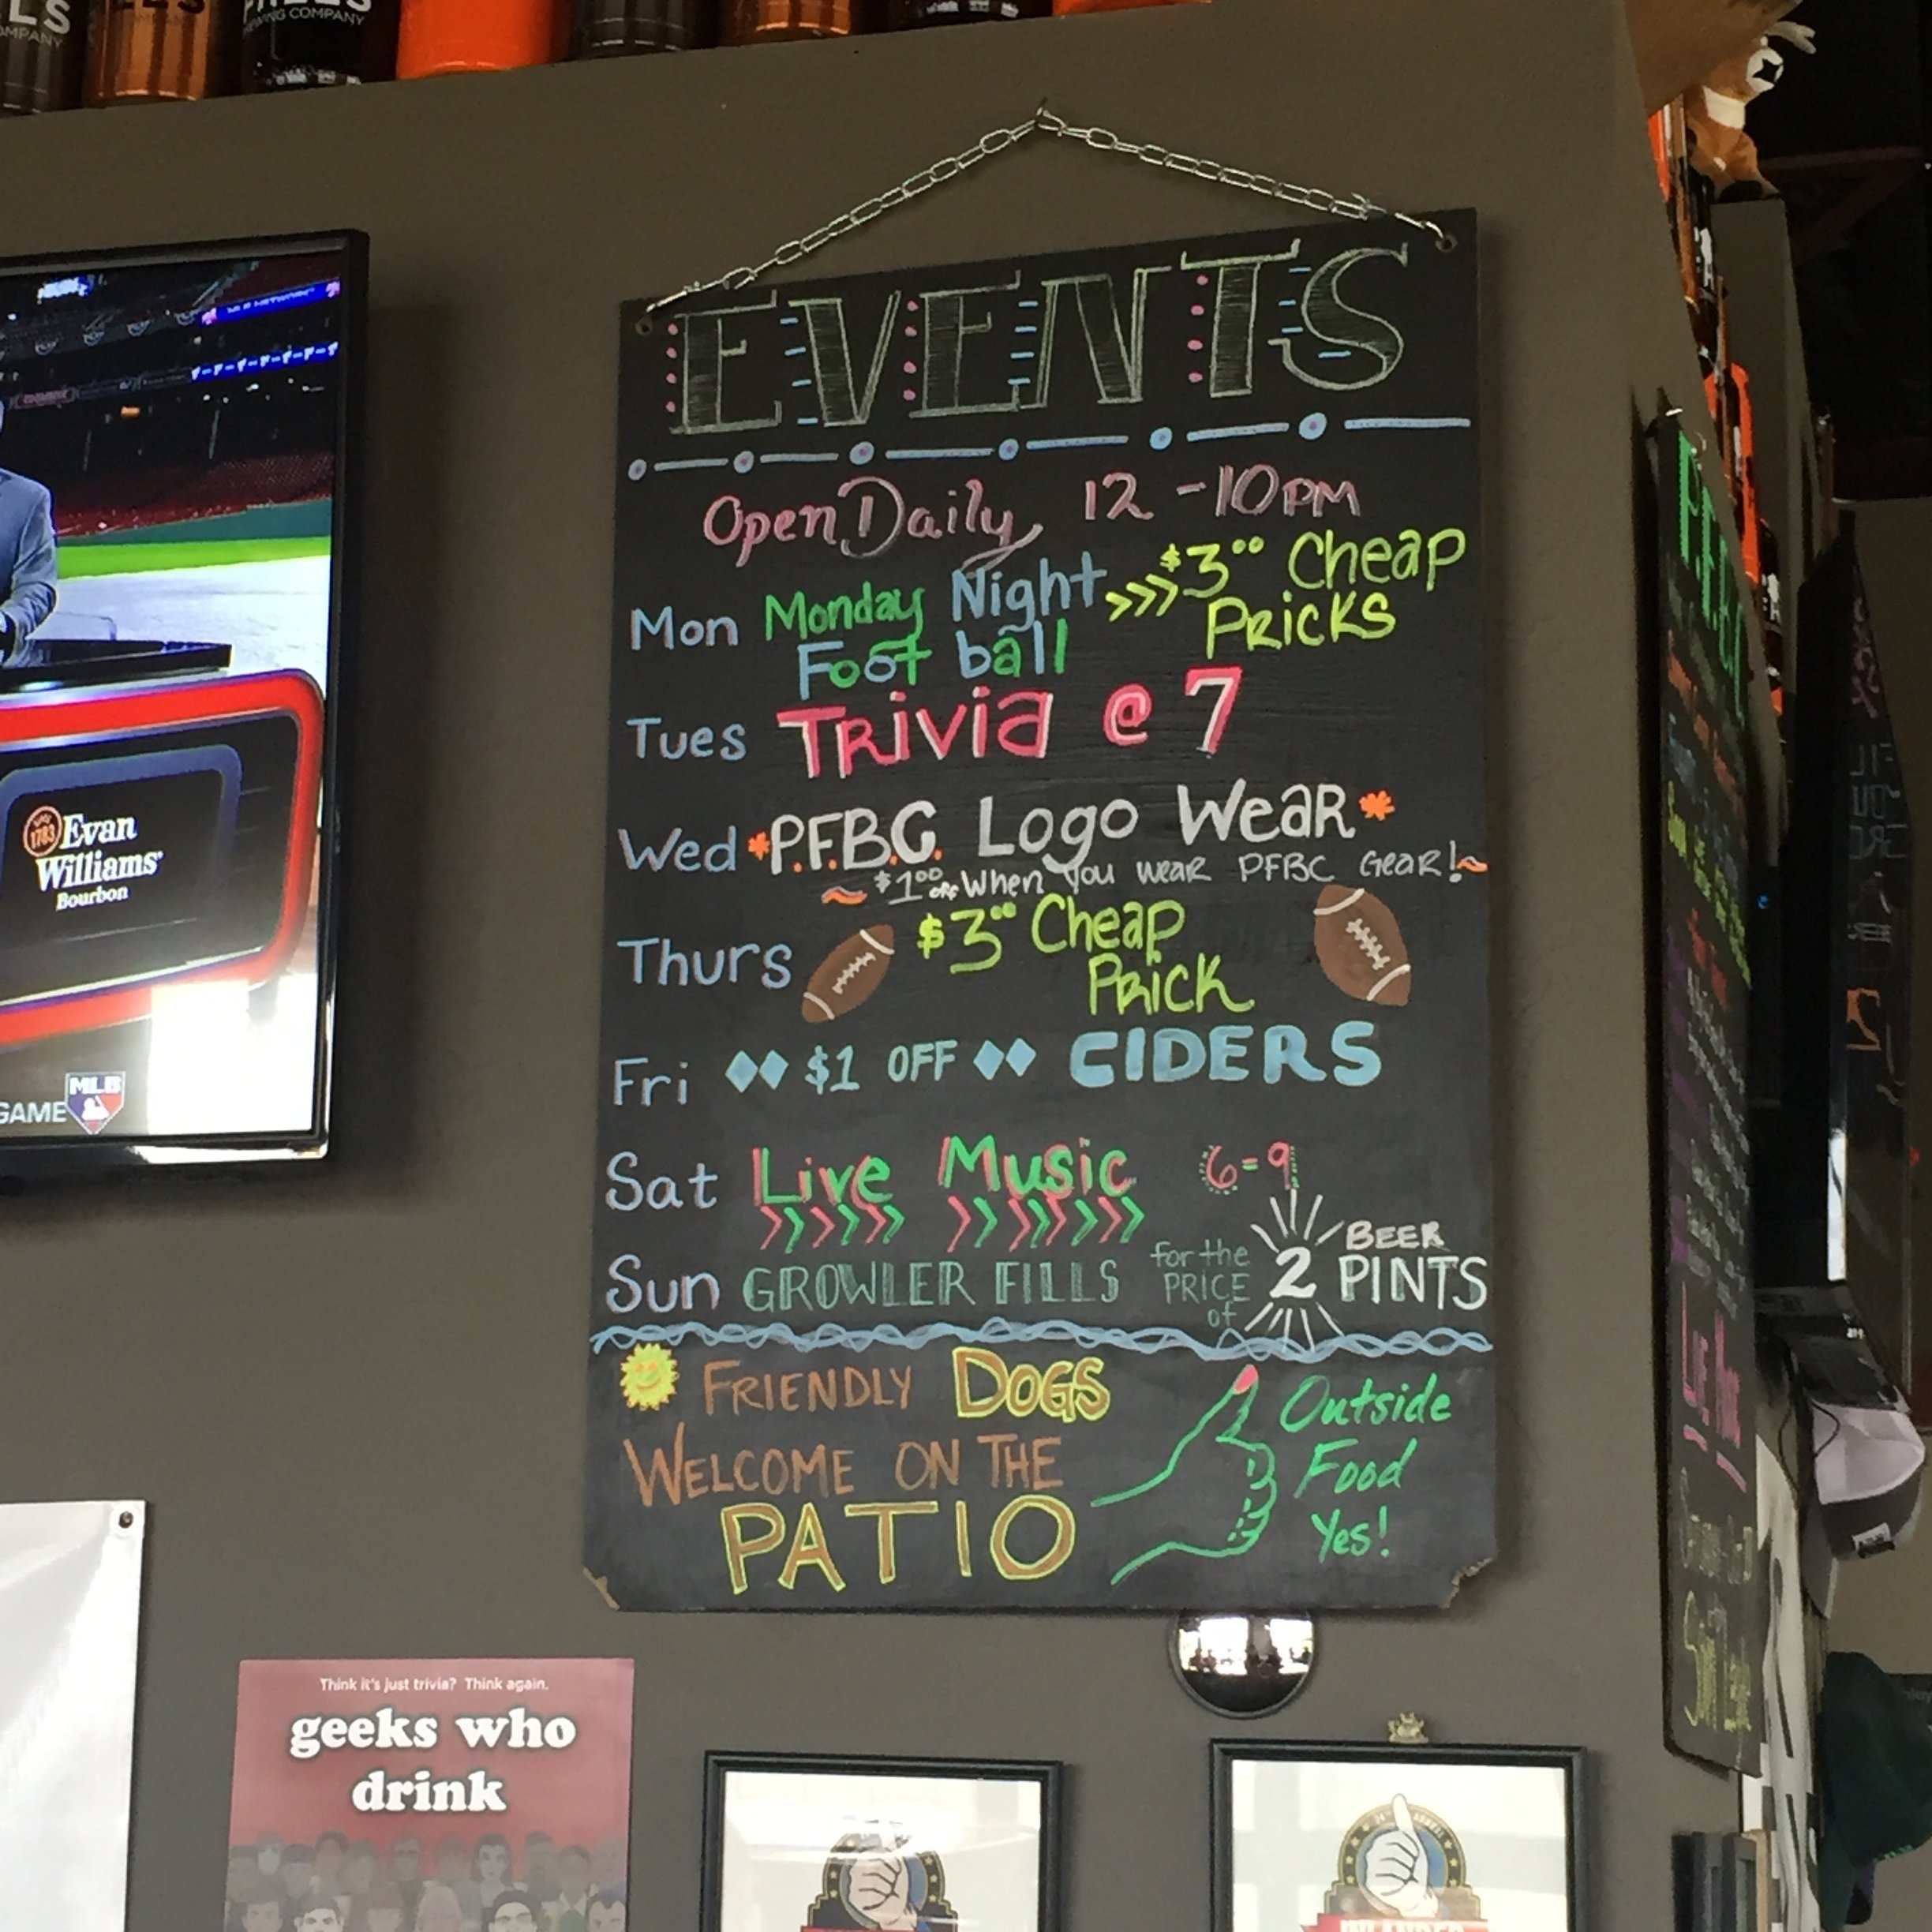 COMPANY
EVENTS
Open Daily 12-10PM
Mon Monday Night >>> $3.00 Cheap
Foot ball Pricks
Tues Trivia @ 7
Wed *P.F.B.C. Logo Wear*
~ $1.00 off When you wear PFBC Gear! ~
Thurs $3.00 Cheap
Prick
Fri ♦♦ $1 OFF ♦♦ CIDERS
Sat Live Music 6-9
>>>>>> >>>>>>>>
Sun GROWLER FILLS for the PRICE of 2 BEER PINTS
FRIENDLY DOGS
WELCOME ON THE
PATIO
Outside
Food
Yes!
1783
Evan
Williams
Bourbon
GAME MLB
Think it's just trivia? Think again.
geeks who
drink